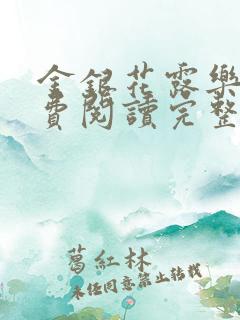 金銀花露樂
費閱讀完整
葛紅林
未經同意禁止轉載